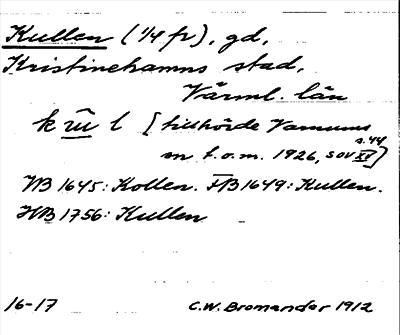 Kullen (1/4 fr), gd,
Kristinehamns stad,
Värml. län
k u l [tillhörde Varnums
s. 44
sn t.o.m. 1926, SOV XV]
JB 1645: Kollen. JB 1649: Kullen.
JB 1756: Kullen
16-17 C.W. Bromander 1912